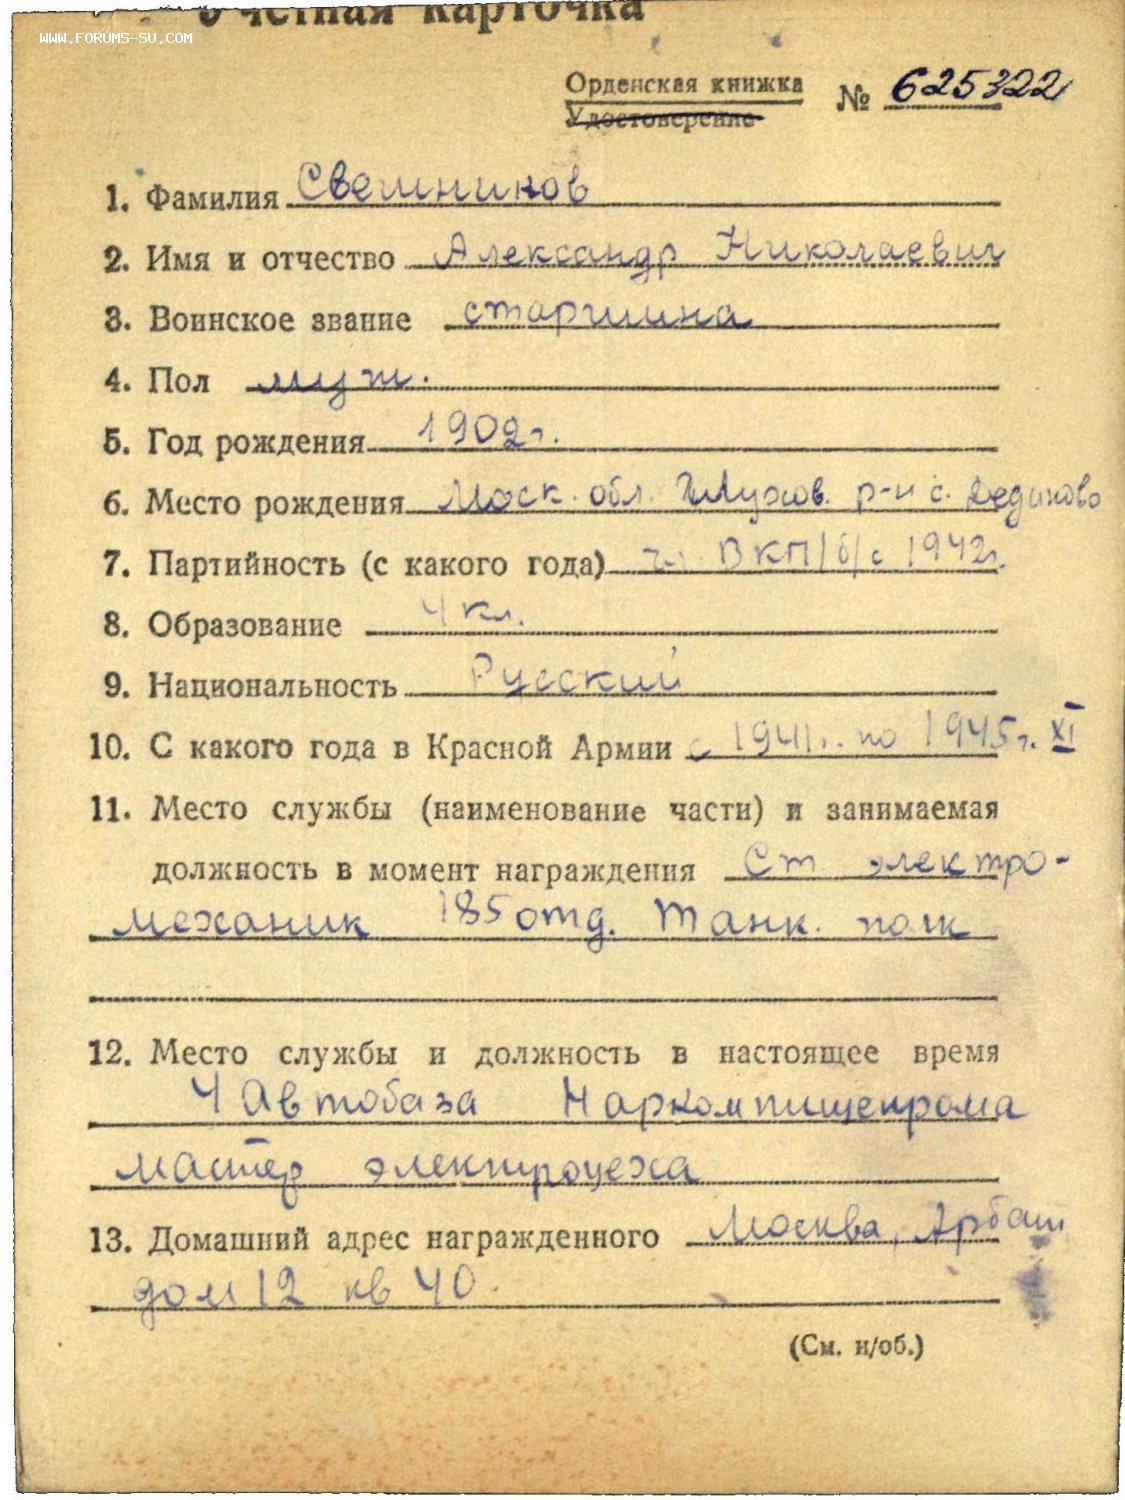 Учетная карточка
WWW.FORUMS-SU.COM
Орденская книжка
Удостоверение
№ 625322
1. Фамилия Свешников
2. Имя и отчество Александр Николаевич
3. Воинское звание старшина
4. Пол муж.
5. Год рождения 1902г.
6. Место рождения Моск. обл. р-н с. Дединово
7. Партийность (с какого года) чл ВКП/б/ с 1942г.
8. Образование 4 кл.
9. Национальность Русский
10. С какого года в Красной Армии с 1941г. по 1945г. XI
11. Место службы (наименование части) и занимаемая
должность в момент награждения Ст электро-
механик 185 отд. танк. полк
12. Место службы и должность в настоящее время
4 Автобаза Наркомпищепрома
мастер электроцеха
13. Домашний адрес награжденного Москва, Арбат
дом 12 кв 40.
(См. н/об.)